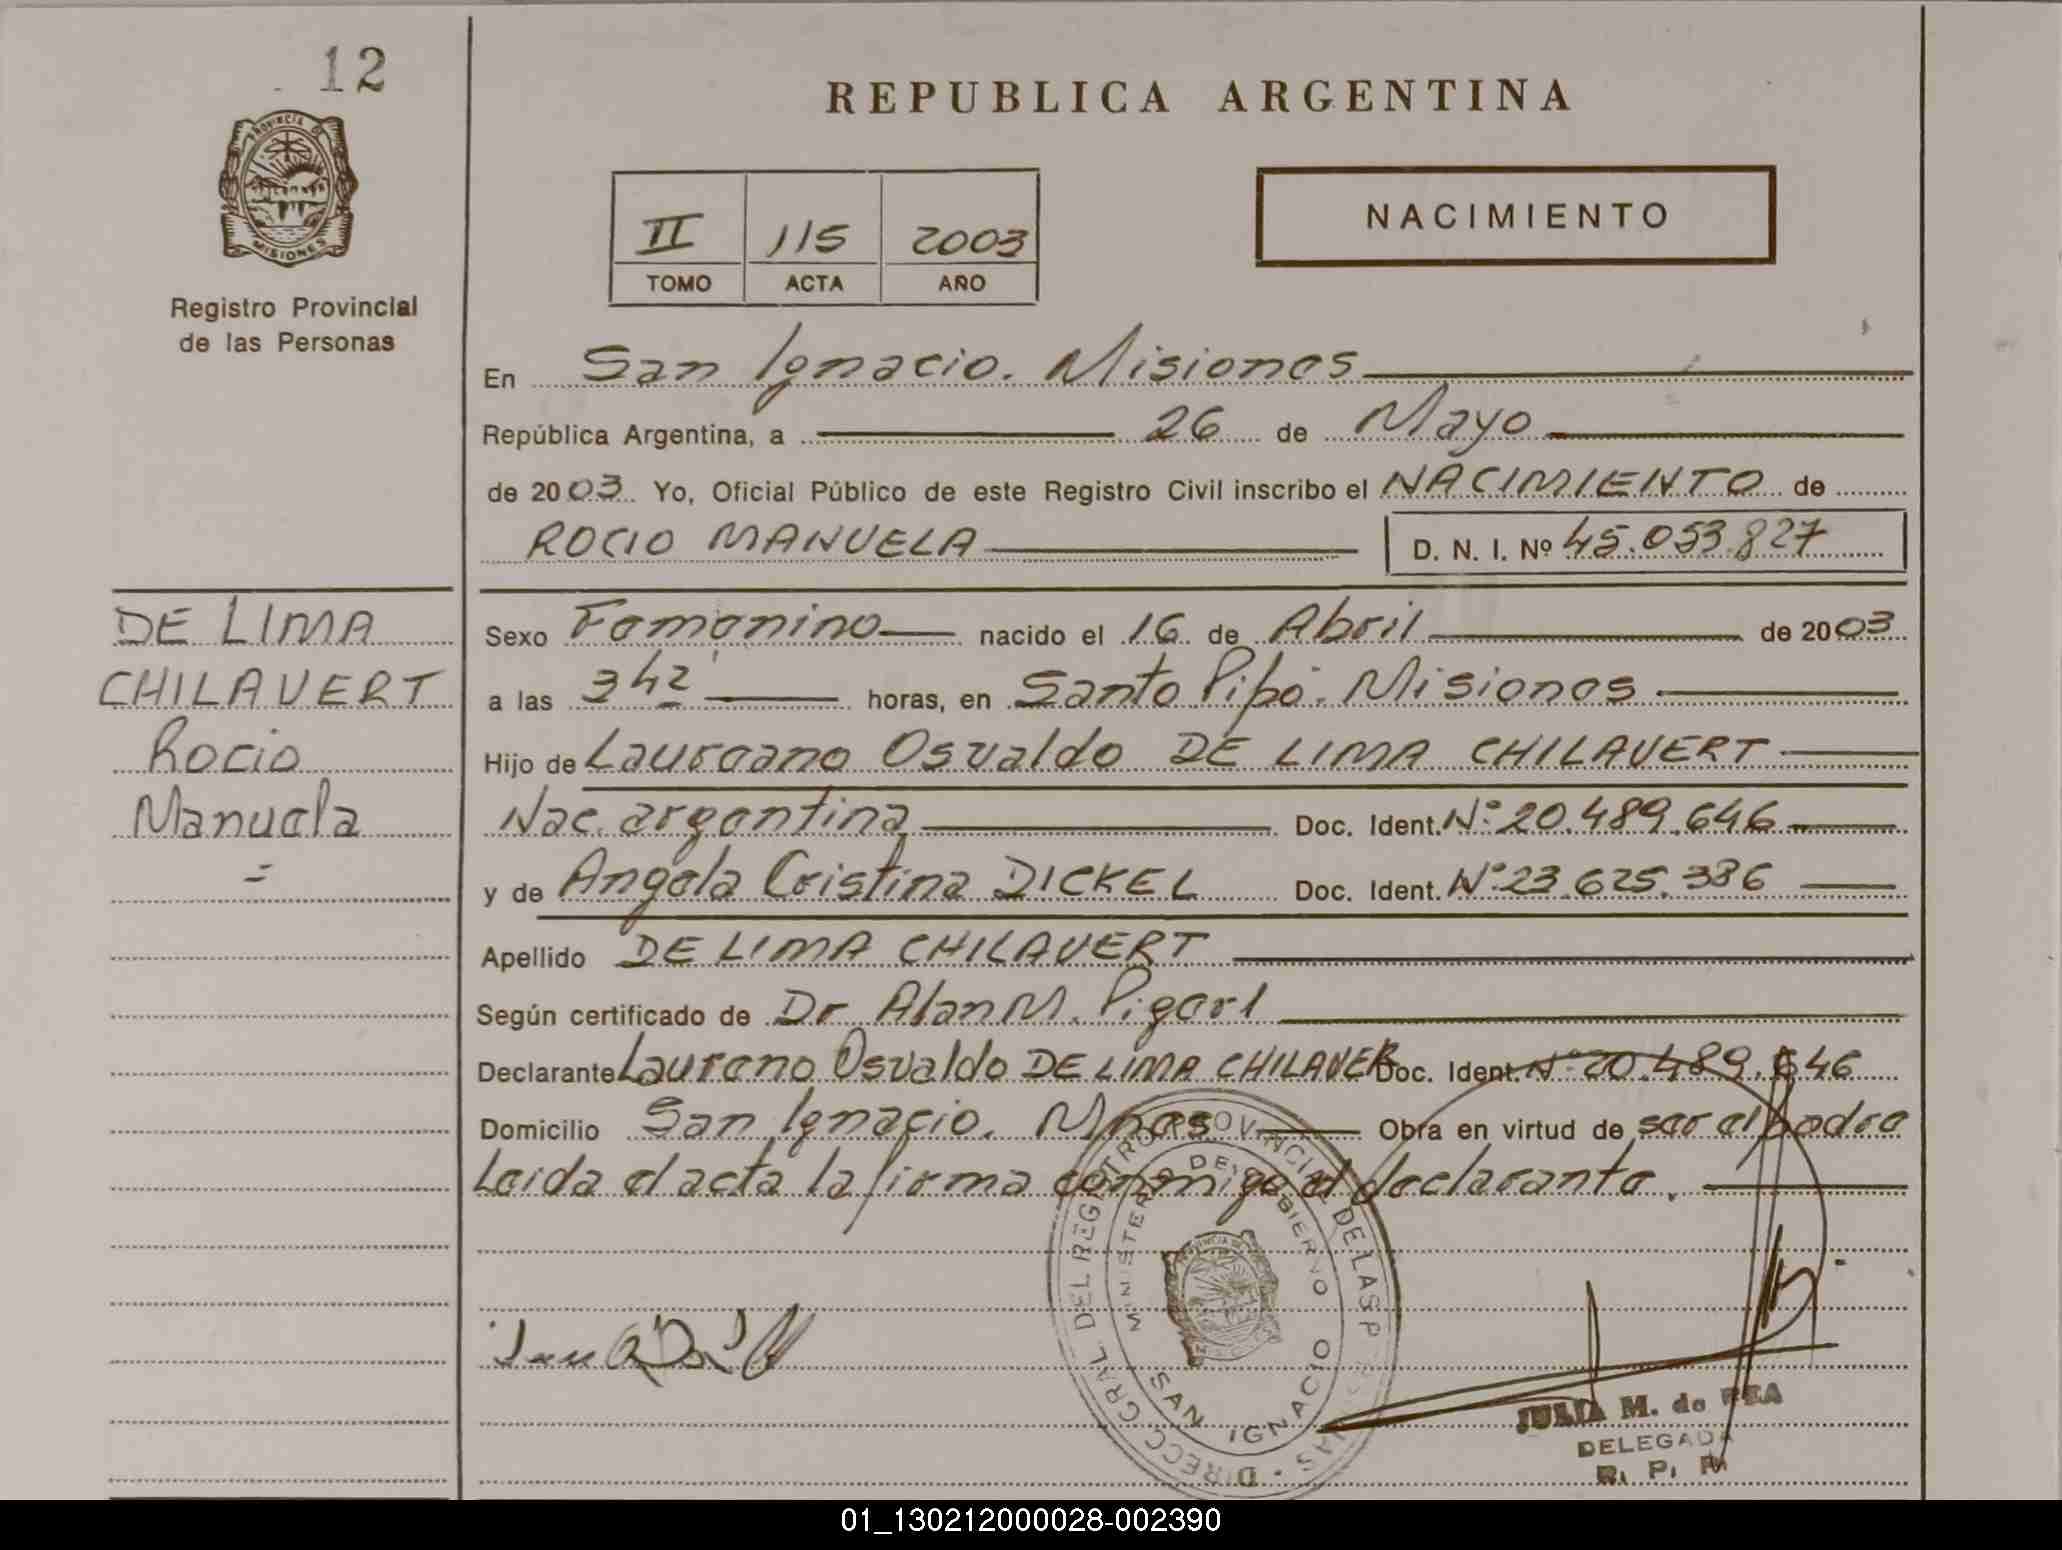 12
PROVINCIA DE
MISIONES
Registro Provincial
de las Personas
DE LIMA
CHILAVERT
Rocio
Manuela
=
REPUBLICA ARGENTINA
II 115 2003
TOMO ACTA AÑO
NACIMIENTO
En San Ignacio. Misiones
República Argentina, a 26 de Mayo
de 2003 Yo, Oficial Público de este Registro Civil inscribo el NACIMIENTO de
ROCIO MANUELA D. N. I. Nº 45.053.827
Sexo Femenino nacido el 16 de Abril de 2003
a las 3 42 horas, en Santo Pipó. Misiones
Hijo de Laureano Osvaldo DE LIMA CHILAVERT
Nac. argentina Doc. Ident. Nº 20.489.646
y de Angela Cristina DICKEL Doc. Ident. Nº 23.625.386
Apellido DE LIMA CHILAVERT
Según certificado de Dr Alan M.
Declarante Laureno Osvaldo DE LIMA CHILAVER Doc. Ident. Nº 20.489.646
Domicilio San Ignacio. Mnes Obra en virtud de ser el padre
Leida el acta la firma conmigo el declarante.
DIRECC GRAL DEL REGISTRO PROVINCIAL DE LAS PERSONAS
MINISTERIO DE GOBIERNO
SAN IGNACIO
JULIA M. de
DELEGADA
R. P. P.
01_130212000028-002390